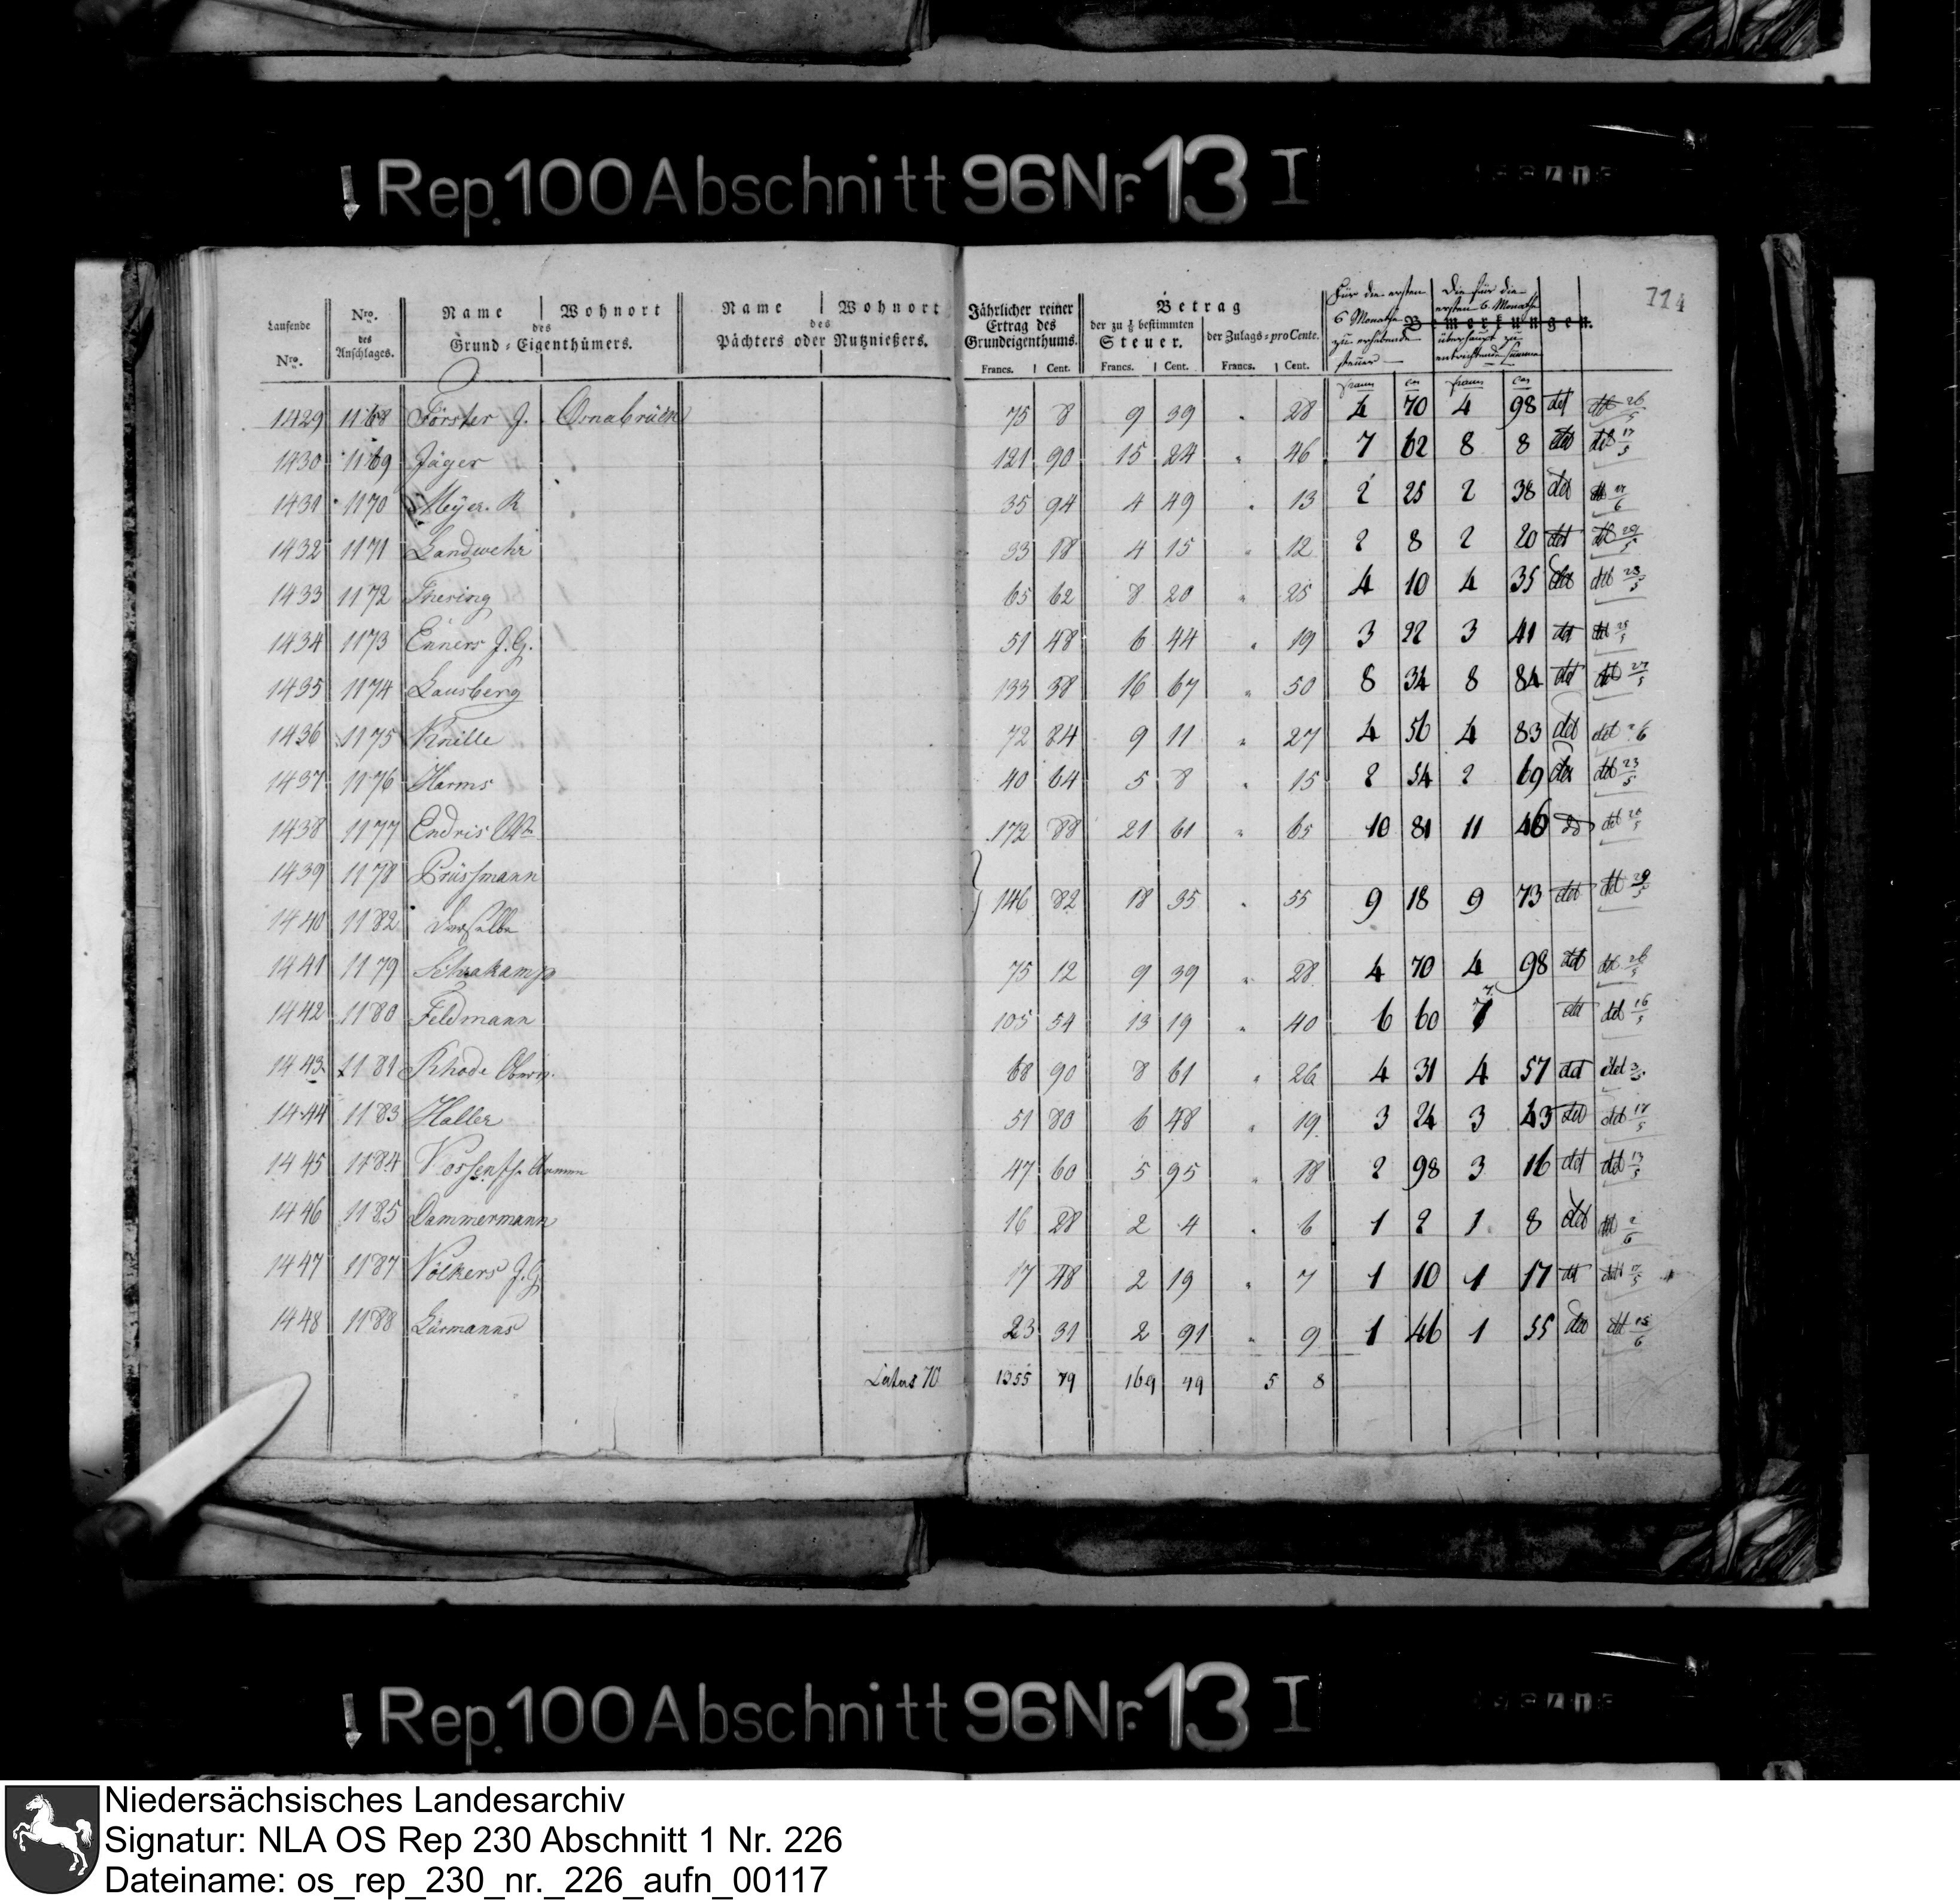 Rep. 100 Abschnitt 96 Nr. 13 I
114
Laufende Nro.
Nro. des Anschlages.
Name | Wohnort
des
Grund-Eigenthümers.
Name | Wohnort
des
Pächters oder Nutznießers.
Jährlicher reiner Ertrag des Grundeigenthums.
Francs. | Cent.
Betrag
der zu 1/8 bestimmten Steuer.
Francs. | Cent.
der Zulags-proCente.
Francs. | Cent.
Bemerkungen.
Für die ersten 6 Monathe zu erhebende Steuer
Die für die ersten 6 Monathe überhaupt zu entrichtende Summe
1429 1168 Förster J. Osnabrück 75 8 9 39 " 28 4 70 4 98 det 26/5
1430 1169 Jäger 121 90 15 24 " 46 7 62 8 8 det det 17/5
1431 1170 Meÿer R 35 94 4 49 " 13 2 25 2 38 det
1432 1171 Landwehr 33 18 4 15 " 12 2 8 2 20 det det 29/5
1433 1172 Thering 65 62 8 20 " 25 4 10 4 35 det det 28/5
1434 1173 Enners J. G. 51 48 6 44 " 19 3 22 3 41 det det 25/5
1435 1174 Lausberg 133 38 16 67 " 50 8 34 8 84 det det 27/5
1436 1175 Knille 72 84 9 11 " 27 4 56 4 83 det det
1437 1176 Harms 40 64 5 8 " 15 2 54 2 69 det det 23/5
1438 1177 Endris 172 88 21 61 " 65 10 81 11 46 det
1439 1178 Brüssmann
146 82 18 35 " 55 9 18 9 73 det det 29/5
1440 1182 derselbe
1441 1179 Schrakamp 75 12 9 39 " 28 4 70 4 98 det det 26/5
1442 1180 Feldmann 105 54 13 19 " 40 6 60 7 det det 16/5
1443 1181 Rhode 68 90 8 61 " 26 4 31 4 57 det det
1444 1183 Haller 51 80 6 48 " 19 3 24 3 43 det det 18/5
1445 1184 47 60 5 95 " 18 2 98 3 16 det det 13/5
1446 1185 Dammermann 16 28 2 4 " 6 1 2 1 8 det det 2/6
1447 1187 Völkers J. G. 17 48 2 19 " 7 1 10 1 17 det det 17/5
1448 1188 Lürmanns 23 31 2 91 " 9 1 46 1 55 det det 15/6
Latus 70 1355 79 169 49 5 8
Rep. 100 Abschnitt 96 Nr. 13 I
Niedersächsisches Landesarchiv
Signatur: NLA OS Rep 230 Abschnitt 1 Nr. 226
Dateiname: os_rep_230_nr._226_aufn_00117